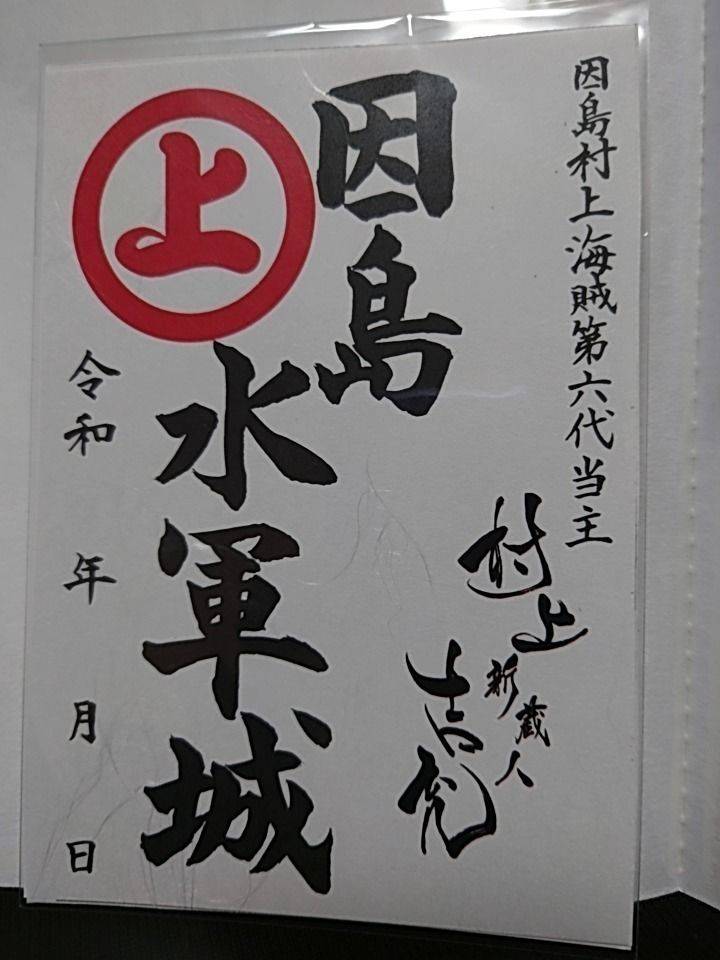 因島村上海賊第六代当主
村上新蔵人
吉充
因島
水軍城
上
令和 年 月 日